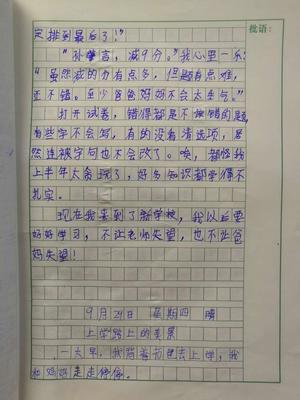 批语:
定排到最后了!”
“孙 言,减9分。”我心里一乐:
“虽然减的力有点多,但题有点难,
还不错。至少爸爸妈妈不会太生气。”
打开试卷,错得都是不 的题
有些字不会写,有的没看清选项,居
然连被字句也不会改了。唉,都怪我
上半年太 了,好多知识都学得不
扎实。
现在我来到了新学校,我以后要
好好学习,不让老师失望,也不让爸
妈失望!
9月29日 星期四 晴
上学路上的美景
一大早,我背着书包去上学,我
和妈妈走走停停。